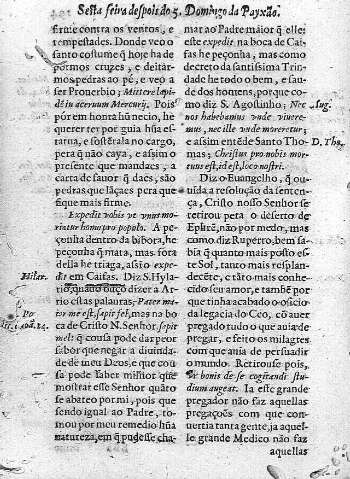 Sesta feira despois do 5. Domingo da Payxão.
firme contra os ventos, e
tempestades. Donde veo o
santo costume q̃ hoje ha de
pormos cruzes, e deitár-
mos pedras ao pé, e veo a
ser Proverbio; Mittere lapi-
dē in acervum Mercurij. Pois
pór em honta hũ necio, he
querer ter por guia hũa es-
tatua, e sostērala no cargo,
pera q̃ não caya, e assim o
presente que mandaes, a
carta de favor q̃ daes, são
pedras que láçaes pera que
fique mais firme.
Expedit vobis ut unus mo-
riatur homo pro populo. A pe-
çonha dentro da bibora, he
peçonha q̃ mata, mas fora
della he triaga, assi o expe-
dit em Caifas. Diz S. Hyla-
Hilar.
rio, quando ouço dizer a Ar-
rio estas palauras; Pater ma-
ior me est, sapit fel, mas na bo-
ca de Christo N. Senhor sapit
mel: q̃ cousa póde dar peor
sabor que negar a diuinda-
de de meu Deos, e que cou-
sa póde saber milhor que
mostrar esse Senhor quáto
se abateo por mi, pois que
sendo igual ao Padre, to-
mou por meu remedio hũa
natureza, em q̃ pudesse cha-
mar ao Padre maior q̃ elle:
este expedit, na boca de Cai-
fas he peçonha, mas como
decreto da santissima Trin-
dade he todo o bem, e sau-
de dos homens, por que co-
mo diz S. Agostinho; Nec
Aug.
nos habebamus unde viuere-
mus, nec ille unde moreretur;
e assim entēde Santo Tho-
D. Tho.
mas; Christus pro nobis mor-
tuus est, id est, loco nostri.
Diz o Euangelho, q̃ ou-
uida a resolução da senten-
ça, Cristo nosso Senhor se
retirou pera o dezerto de
Efrē, não por medo, mas
como diz Ruperto, bem sa-
bia q̃ quanto mais posto es-
te Sol, tanto mais resplan-
decēte, e tanto mais conhe-
cido seu amor, e tambē por
que tinha acabado o officio
da legacia do Ceo, có auer
pregado tudo o que auia de
pregar, e feito os milagres
com que auia de persuadir
o mundo. Retirouse pois,
ut bonis de se cogitandi stu-
dium augeat. Ia este grande
pregador não faz aquellas
pregações com que con-
uertia tanta gente, ja aquel-
le grande Medico não faz
aquellas